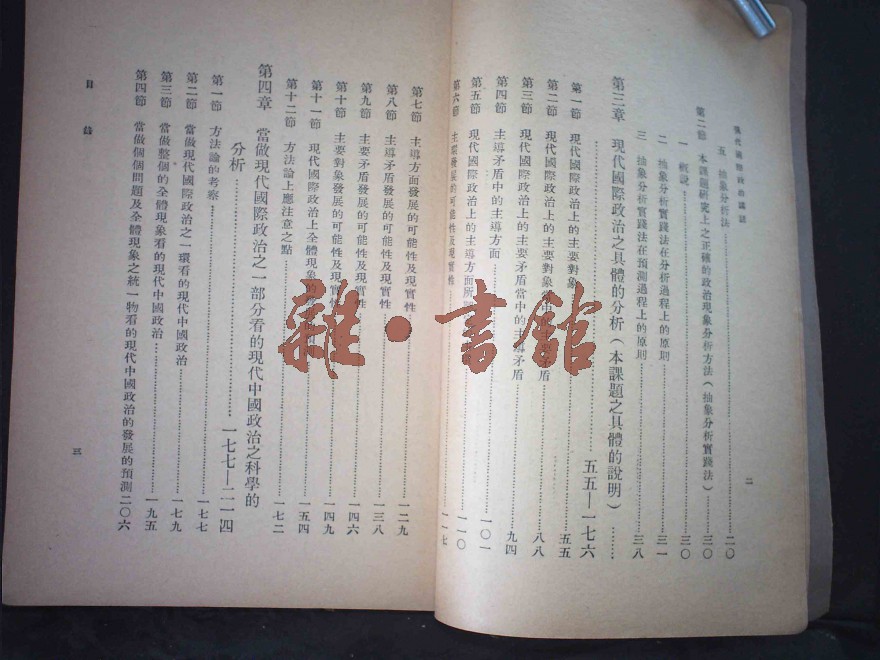 現代國際政治講話
五 抽象分析法……二〇
第二節 本課題研究上之正確的政治現象分析方法（抽象分析實踐法）……三〇
一 概說……三〇
二 抽象分析實踐法在分析過程上的原則……三一
三 抽象分析實踐法在預測過程上的原則……三八
第三章 現代國際政治之具體的分析（本課題之具體的說明）……
……五五—一七六
第一節 現代國際政治上的主要對象……五五
第二節 現代國際政治上的主要對象 矛盾……八八
第三節 現代國際政治上的主要矛盾當中的主導矛盾……九四
第四節 主要矛盾中的主導方面……一〇一
第五節 現代國際政治上的主導方面所……一一〇
第六節 主導發展的可能性及現實性……一一七
二
第七節 主導方面發展的可能性及現實性……一二九
第八節 主導矛盾發展的可能性及現實性……一三八
第九節 主要矛盾發展的可能性及現實性……一四六
第十節 主要對象發展的可能性及現實性……一四九
第十一節 現代國際政治上全體現象的……一五四
第十二節 方法論上應注意之點……一七二
第四章 當做現代國際政治之一部分看的現代中國政治之科學的
分析……一七七—二一四
第一節 方法論的考察……一七七
第二節 當做現代國際政治之一環看的現代中國政治……一七九
第三節 當做整個的全體現象看的現代中國政治……一九五
第四節 當做個個問題及全體現象之統一物看的現代中國政治的發展的預測二〇六
目錄
三
雜·書館